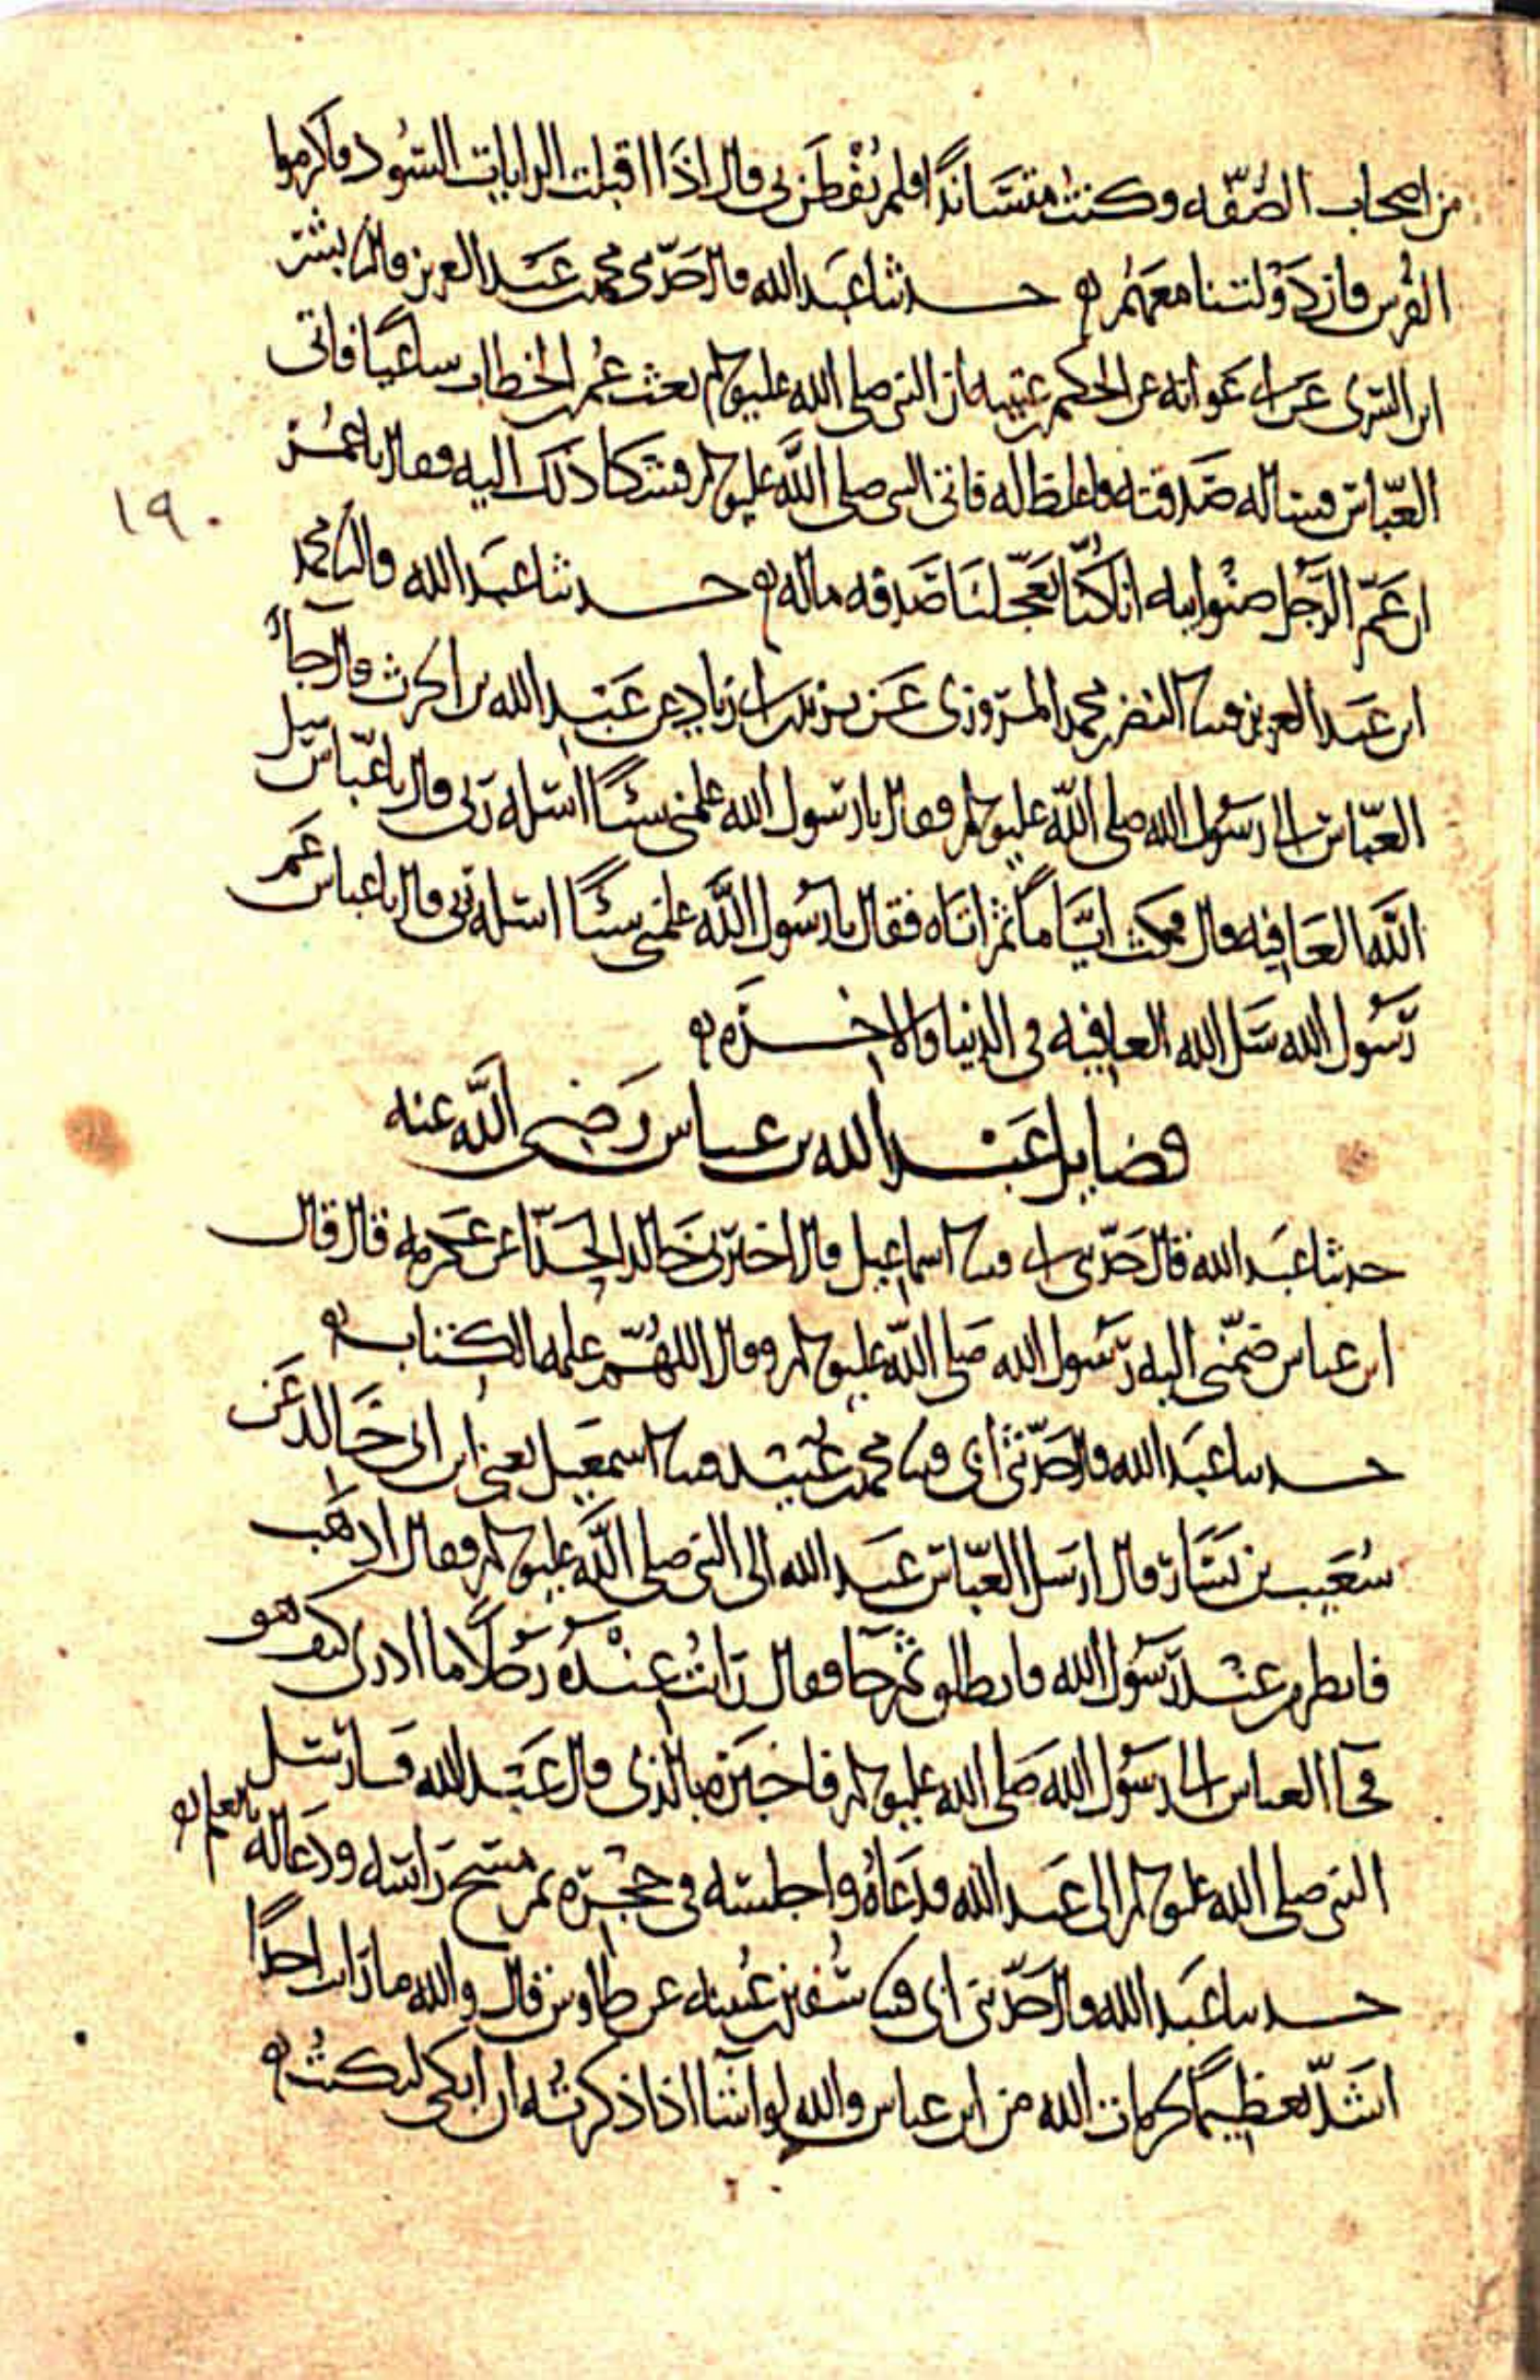 من اصحاب الصُّفّه وكنت متسَّاندًا فلم يُفْطَن بى قال اذَا اقبلت الرايات السُود فاكرموا
الفُرس فان دَوْلتنا معهَمُ ه حدثنا عبَد الله قال حَدّثنى محمد بن عبَد العزيز قال نا بشر
ابن السّرى عن ابى عَوانه عن الحكم بن عتيبه ان النبى صلى الله عليه وسلم بعث عُمر بن الخطاب ساعيًا فاتى
العبّاس فساله صَدقته فاغلظ له فاتى النبى صلى اللَّه عليه وسلم فشكا ذلك اليه فقال يا عُمر
١٩٠
ان عَمّ الرَّجل صنْو ابيه انا كُنّا تعَجّلنَا صَدقه ماله ه حدثنا عبَد الله قال نا محمد
ابن عبَد العزيز قثنا النضر بن محمد المرّوزى عَن يزيد بن ابى زياد عن عبَد الله بن الحرث قال جآء
العبّاس الى رسَول الله صلى اللَّه عليه وسلم فقال يا رسول الله علمنى شيئًا اسئله رَبى قال يا عبّاس سل
اللَّه العَافيه قال فمكث ايَّامًا ثم اتَاه فقال يا رسُول اللَّه علمنى شيئًا اسئله ربى قال يا عباس عَم
رَسُول الله سَل الله العافيه فى الدنيا والاخرَه ه
فضايل عَبْد الله بن عباس رَضى اللَّه عنه
حدثنا عبَد الله قال حَدّثنى ابى قثنا اسماعيل قال اخبرَنى خَالد الحَذّا عن عكرمه قال قال
ابن عباس ضمّنى اليه رَسُول الله صَلى اللَّه عليه وسلم وقال اللهُمّ علمه الكتاب ه
حدثنا عبَد الله قال حَدّثنى ابى قثنا محمد بن عُبيد قثنا اسمعَيل يعنى ابن ابى خَالد عَن
شعَيب بن يسَار قال ارسَل العبّاس عبَد الله الى النبى صلى اللَّه عليه وسلم فقال اذهَب
فانظر من عند رَسُول الله فانطلق ثم جآ فقال رَايتُ عِنْدَهُ رَجُلاً ما ادرى كيف هو
فجآ العباس الى رسَول الله صَلى الله عليه وسلم فاخبرَه بالذى قال عَبَد الله فَارسَل
النبى صلى الله عليه وسلم الى عبَد الله فدَعَاهُ واجلسَه فى حجْره ثم مسَح رَاسَه ودَعَا له بالعلم ه
حدثنا عبَد الله قال حَدّثنى ابى قثنا سُفين بن عُيينه عن طاوس قال والله ما رَايت احدًا
اشَدّ تعظيمًا لحرمات الله من ابن عباس والله لو اشَآ اذا ذكرتُه ان ابكى لبكيتُ ه